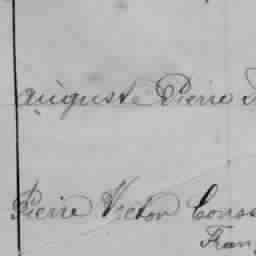 auguste Pierre
Pierre Victor Conss
Fran